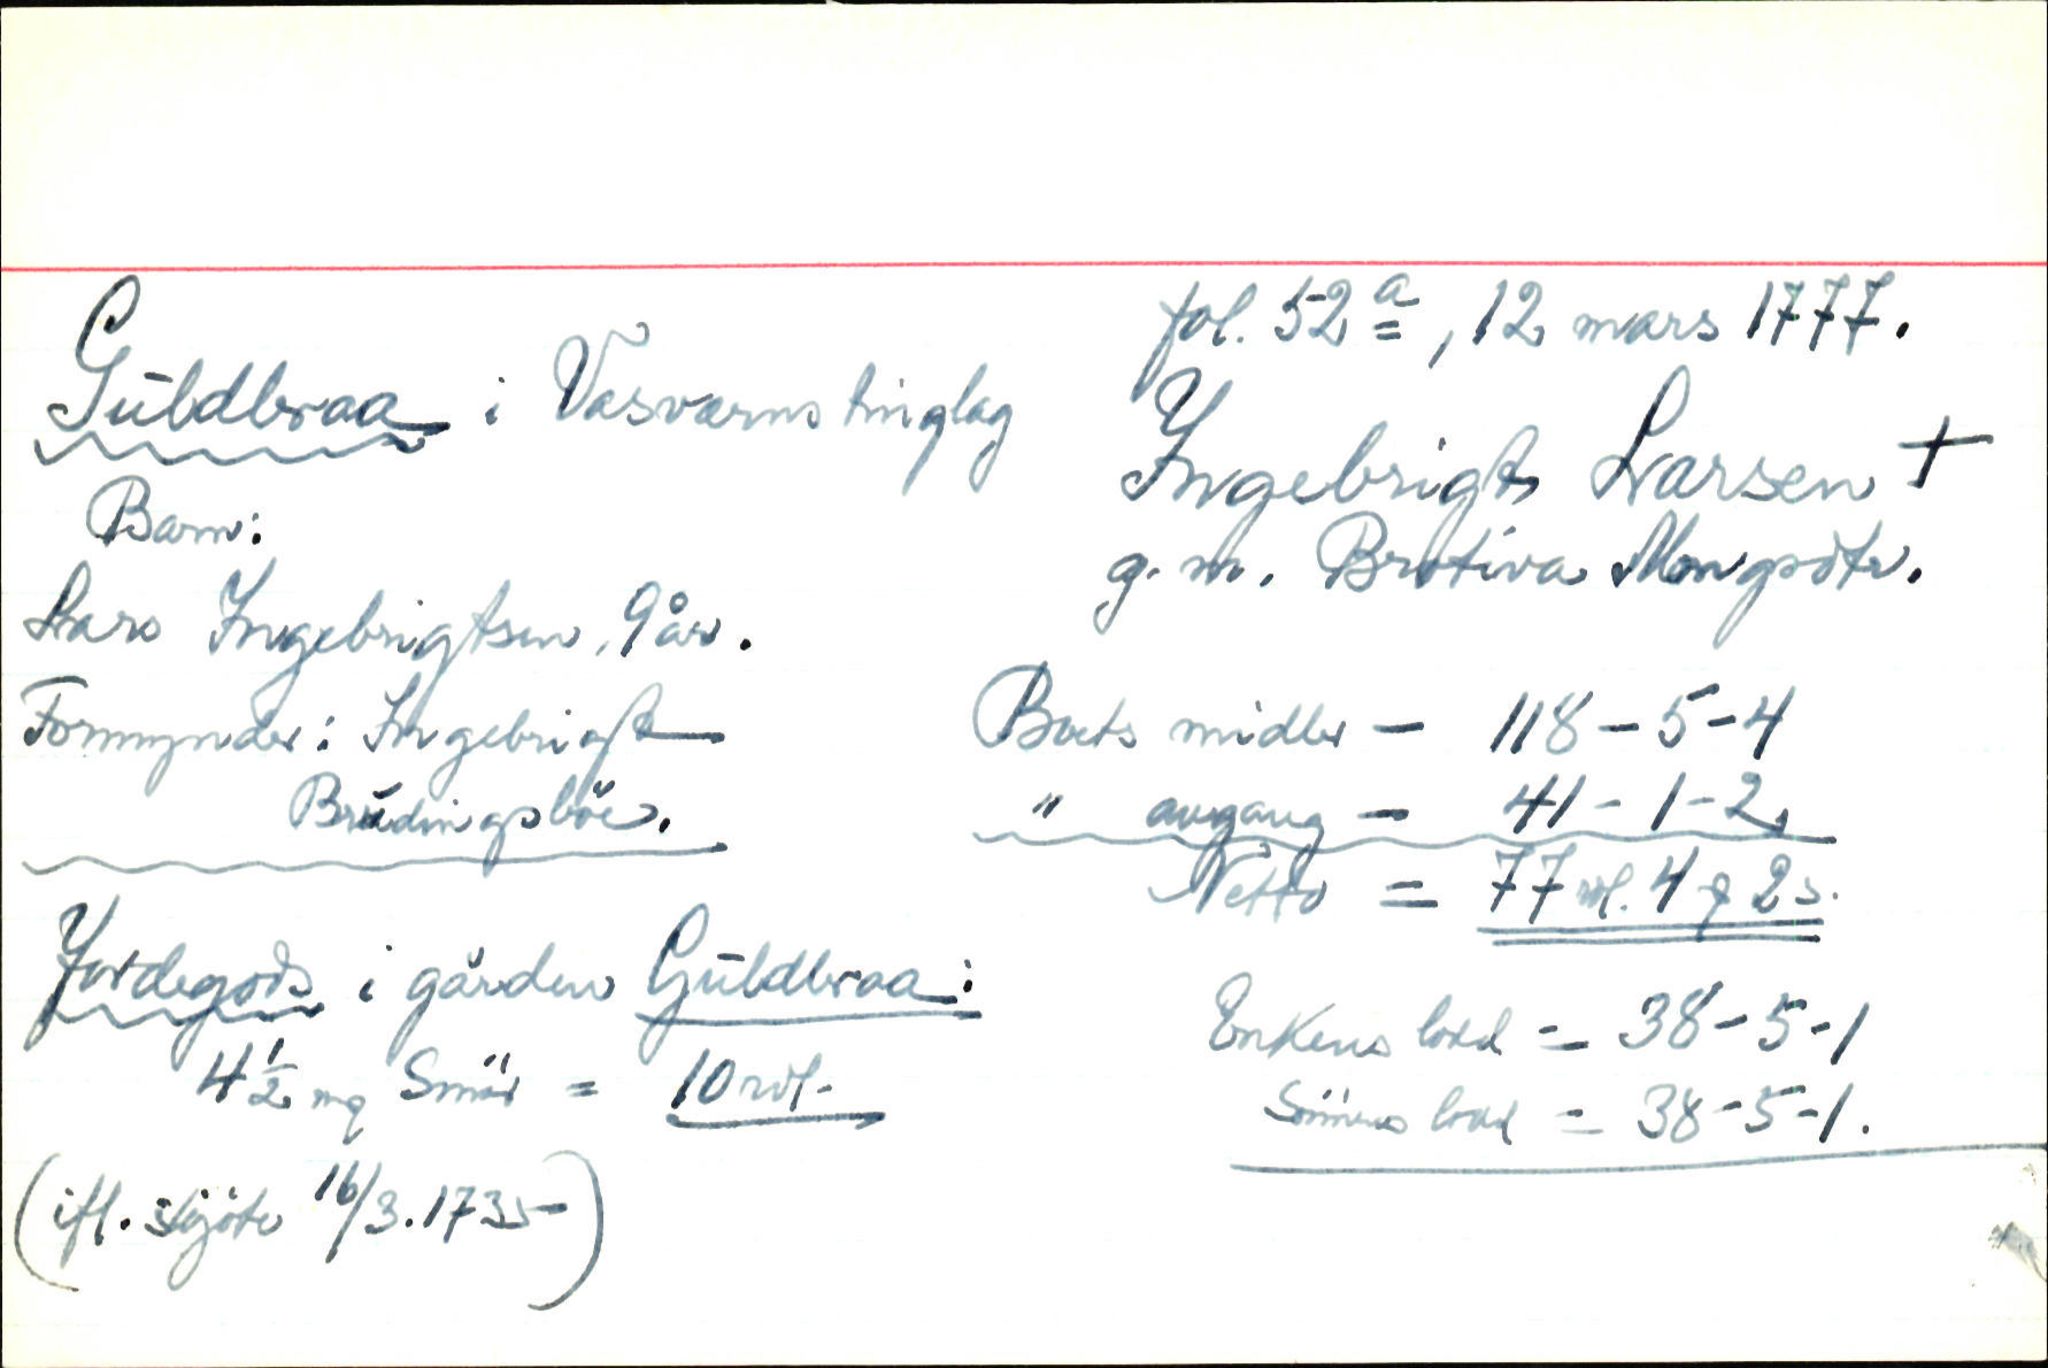 fol. 52 a, 12 mars 1777.
Guldbraa i Vasværns tinglag
Ingebrigt Larsen †
g. m. Brotiva Mongsdtr.
Barn:
Lars Ingebrigtsen, 9 år.
Formynder: Ingebrigt
Brudingsböe.
Boets midler — 118 – 5 – 4
" avgang — 41 – 1 – 2.
Netto = 77 rdl. 4 ƒ 2 s.
Jordegods i gården Guldbraa:
4 1/2 mq Smör = 10 rdl.
(ifl. skjöte 16/3. 1735)
Enkens lodd = 38 – 5 – 1
Sönnens lodd = 38 – 5 – 1.